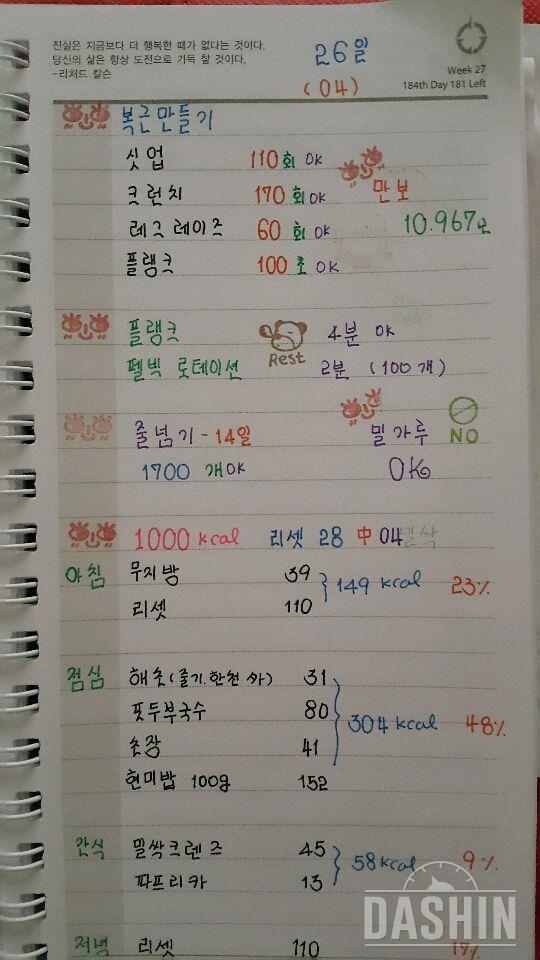 진실은 지금보다 더 행복한 때가 없다는 것이다.
당신의 삶은 항상 도전으로 가득 찰 것이다.
-리처드 칼슨
26일
(04)
Week 27
184th Day 181 Left
복근만들기
싯업 110회 OK
크런치 170회 OK
만보
레그레이즈 60회 OK
10.967보
플랭크 100초 OK
플랭크 4분 OK
Rest
펠빅 로테이션 2분 (100개)
줄넘기 - 14일
밀가루 NO
1700 개 OK
OK
1000 kcal 리셋 28 中 04
아침 무지방 39
리셋 110
149 kcal 23%
점심 해초(줄기.한천 사) 31
풋두부국수 80
초장 41
현미밥 100g 152
304 kcal 48%
간식 밀싹크렌즈 45
파프리카 13
58kcal 9%
저녁 리셋 110 17%
DASHIN